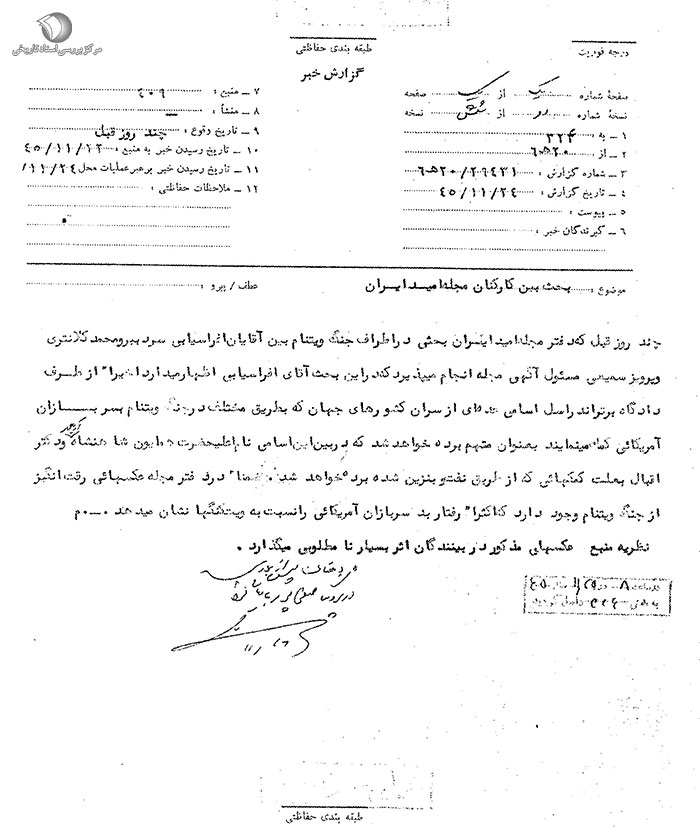 مرکز بررسی اسناد تاریخی
طبقه بندی حفاظتی
درجه فوریت
گزارش خبر
صفحهٔ شماره یک از یک صفحه
نسخهٔ شماره دو از شش نسخه
۱ ـ به : ۳۲۴
۲ ـ از : ۲۰ه۶
۳ ـ شماره گزارش : ۲۰/۲۹۴۳۱ه۶
۴ ـ تاریخ گزارش : ۴۵/۱۱/۲۴
۵ ـ پیوست :
۶ ـ گیرندگان خبر :
۷ ـ منبع : ۴۰۹
۸ ـ منشأ : ـ
۹ ـ تاریخ وقوع : چند روز قبل
۱۰ ـ تاریخ رسیدن خبر به منبع : ۴۵/۱۱/۲۲
۱۱ ـ تاریخ رسیدن خبر برهبر عملیات محل /۱۱/۲۴
۱۲ ـ ملاحظات حفاظتی :
موضوع : بحث بین کارکنان مجله امید ایران
عطف / پیرو :
چند روز قبل که دفتر مجله امید ایران بحثی در اطراف جنگ ویتنام بین آقایان افراسیابی سردبیر و محمد کلانتری
و پرویز سمیعی مسئول آگهی مجله انجام میپذیرد که در این بحث آقای افراسیابی اظهار میدارد اخیرا" از طرف
دادگاه برتراند راسل اسامی عده‌ای از سران کشورهای جهان که بطریق مختلف در جنگ ویتنام بسربازان
آمریکائی کمک مینمایند بعنوان متهم برده خواهد شد که در بین این اسامی نام اعلیحضرت همایون شاهنشاه و دکتر
اقبال بعلت کمکهائی که از طریق نفت و بنزین شده برده خواهد شد . ضمنا" در دفتر مجله عکسهائی رقت انگیز
از جنگ ویتنام وجود دارد که اکثرا" رفتار بد سربازان آمریکائی را نسبت به ویتنگنها نشان میدهد ۰ــ۰م
نظریه منبع عکسهای مذکور در بینندگان اثر بسیار نا مطلوبی میگذارد .
طبقه بندی حفاظتی